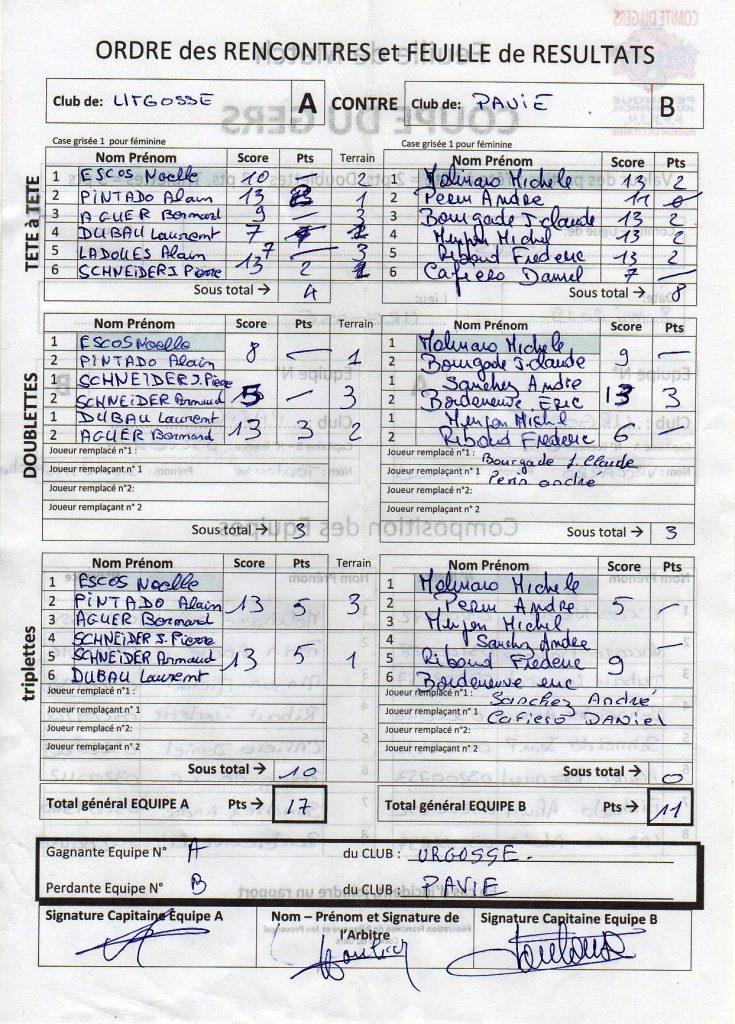 ORDRE des RENCONTRES et FEUILLE de RESULTATS
Club de: URGOSSE A CONTRE Club de: PAVIE B
Case grisée 1 pour féminine Case grisée 1 pour féminine
TETE à TETE
Nom Prénom Score Pts Terrain Nom Prénom Score Pts
1 ESCOS Noelle 10 — 2 1 Molinaro Michele 13 2
2 PINTADO Alain 13 2 1 2 Perin Andre 11 0
3 AGUER Bernard 9 — 3 3 Bourgade J.claude 13 2
4 DUBAU Laurent 7 — 2 4 Menjon Michel 13 2
5 LADOUES Alain 7 — 3 5 Riboud Frederic 13 2
6 SCHNEIDER J. Pierre 13 2 1 6 Cafiero Daniel 7 —
Sous total → 4 Sous total → 8
DOUBLETTES
Nom Prénom Score Pts Terrain Nom Prénom Score Pts
1 ESCOS Noelle 8 — 1 1 Molinaro Michele 9 —
2 PINTADO Alain 2 Bourgade J.claude
1 SCHNEIDER J. Pierre 5 — 3 1 Sanchez Andre 13 3
2 SCHNEIDER Arnaud 2 Bordeneuve Eric
1 DUBAU Laurent 13 3 2 1 Menjon Michel 6 —
2 AGUER Bernard 2 Riboud Frederic
Joueur remplacé n°1 : Joueur remplacé n°1 : Bourgade J. Claude
Joueur remplaçant n° 1 Joueur remplaçant n°1 Perin andré
Joueur remplacé n°2: Joueur remplacé n°2:
Joueur remplaçant n° 2 Joueur remplaçant n° 2
Sous total → 3 Sous total → 3
triplettes
Nom Prénom Score Pts Terrain Nom Prénom Score Pts
1 ESCOS Noelle 1 Molinaro Michele
2 PINTADO Alain 13 5 3 2 Perin Andre 5 —
3 AGUER Bernard 3 Menjon Michel
4 SCHNEIDER J. Pierre 4 Sanchez Andre
5 SCHNEIDER Arnaud 13 5 1 5 Riboud Frederic 9 —
6 DUBAU Laurent 6 Bordeneuve eric
Joueur remplacé n°1 : Joueur remplacé n°1 : Sanchez André
Joueur remplaçant n° 1 Joueur remplaçant n° 1 Cafiero DANIEL
Joueur remplacé n°2: Joueur remplacé n°2:
Joueur remplaçant n° 2 Joueur remplaçant n° 2
Sous total → 10 Sous total → 0
Total général EQUIPE A Pts → 17 Total général EQUIPE B Pts → 11
Gagnante Equipe N° A du CLUB : URGOSSE.
Perdante Equipe N° B du CLUB : PAVIE
Signature Capitaine Equipe A Nom – Prénom et Signature de l'Arbitre Signature Capitaine Equipe B